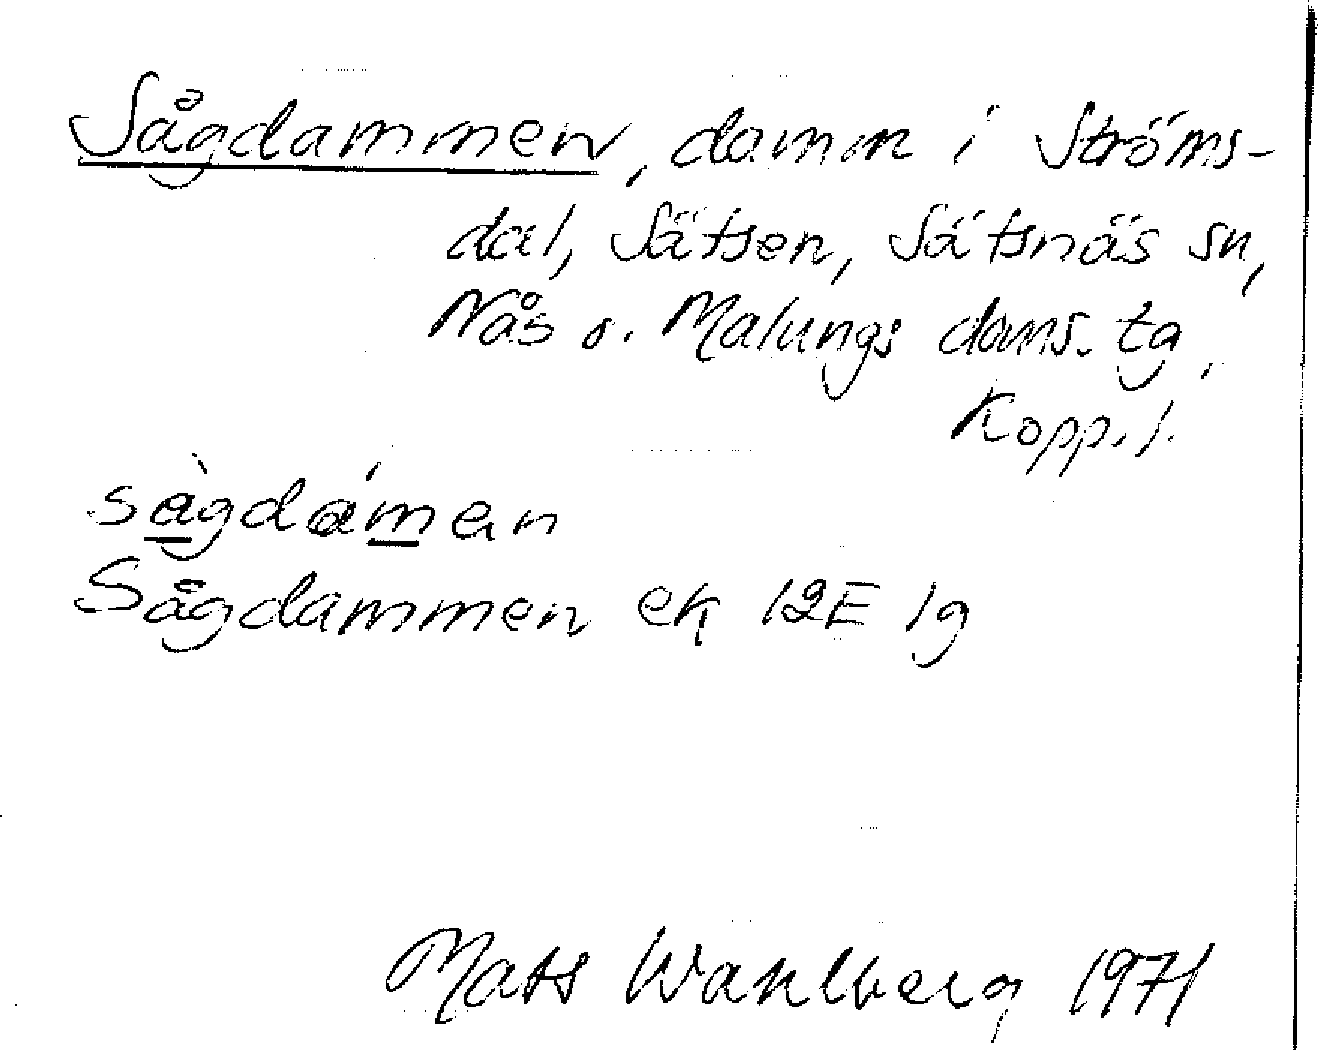 Sågdammen, damm i Ströms-
dal, Sätsen, Sätsnäs sn,
Nås o. Malungs doms. tg,
Kopp. l.
sàgdámen
Sågdammen ek 12E 1g
Mats Wahlberg 1971